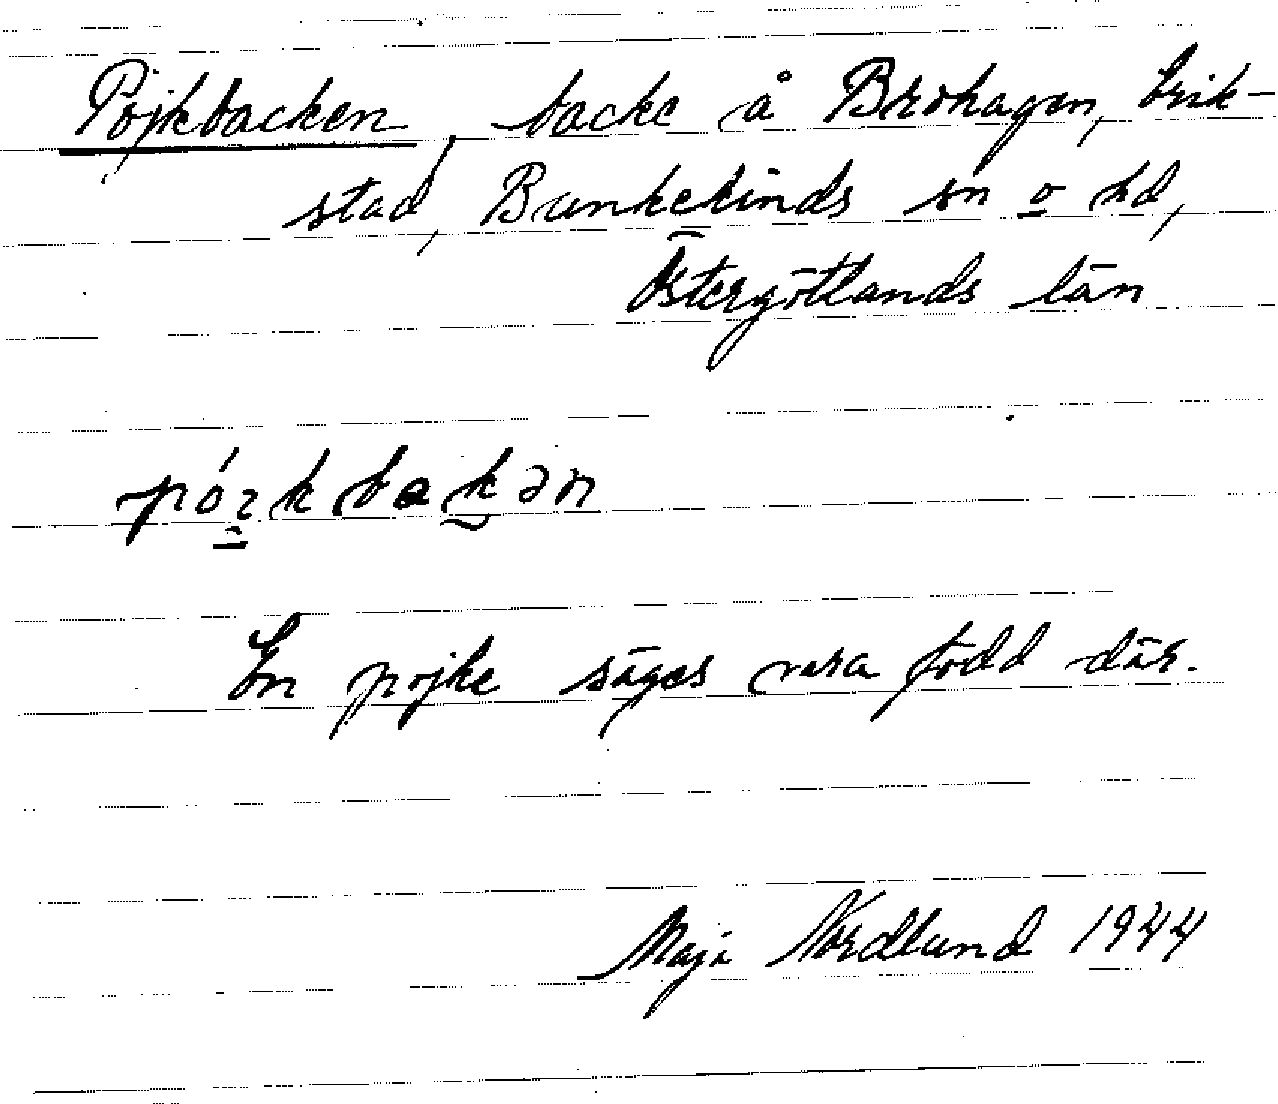 Pojkbacken, backe å Brohagen, Erik-
stad, Bankekinds sn o hd,
Östergötlands län
En pojke säges vara född där.
Maja Nordlund 1944